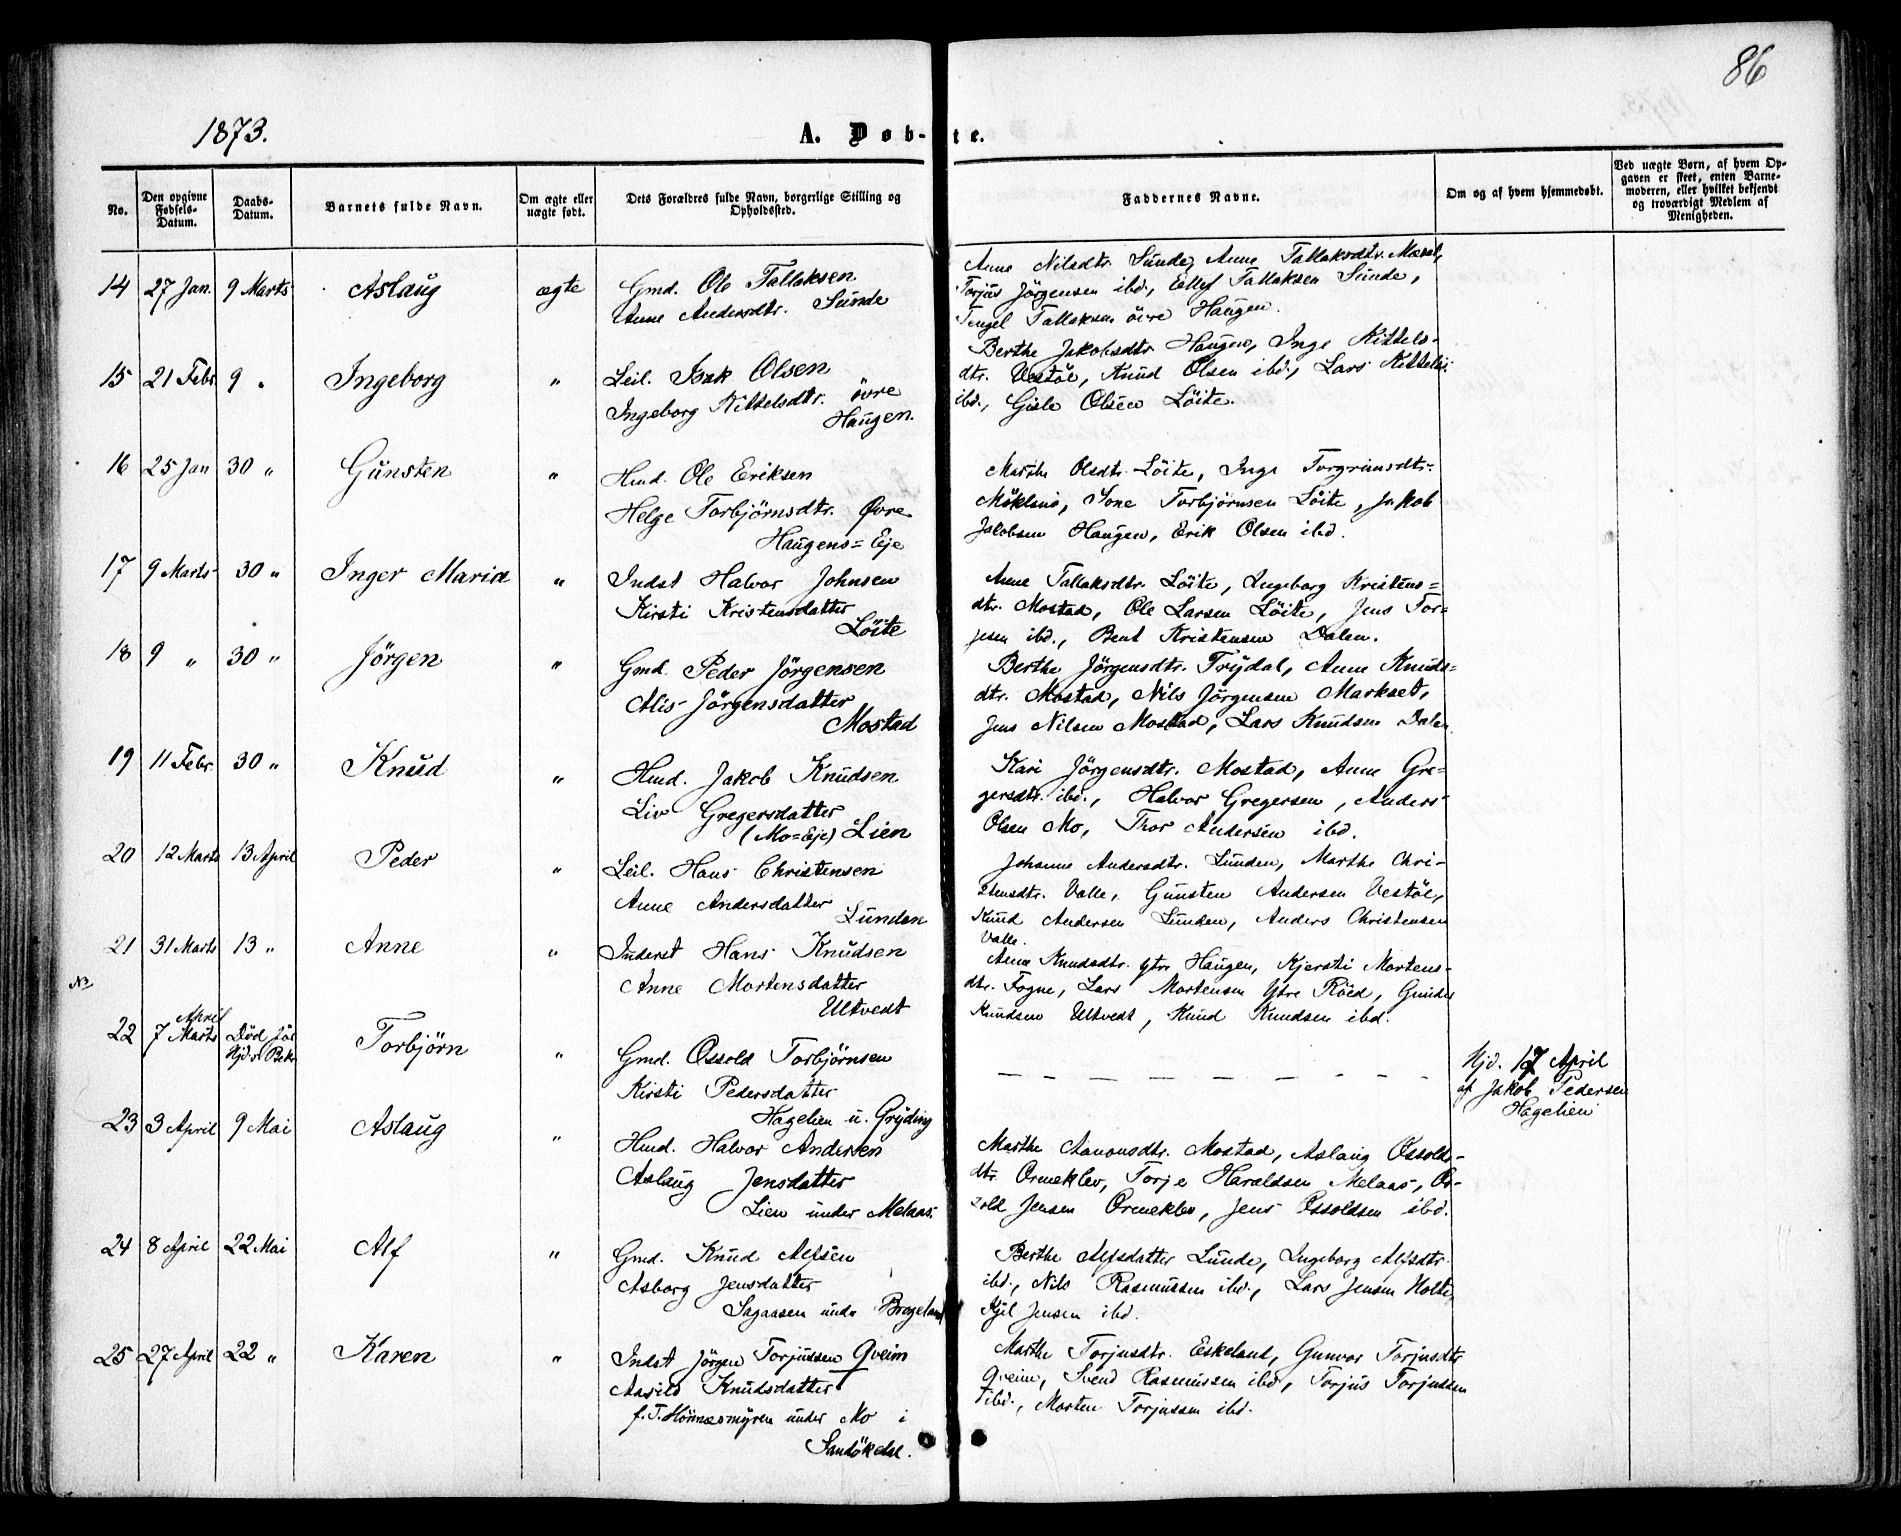 86
1873.
A. Døb-te.
No.
Den opgivne Fødsels-Datum.
Daabs-Datum.
Barnets fulde Navn.
Om ægte eller uægte født.
Dets Forældres fulde Navn, borgerlige Stilling og Opholdssted.
Faddernes Navne.
Om og af hvem hjemmedøbt.
Ved uægte Børn, af hvem Opgaven er skeet, enten Barnemoderen, eller hvilket bekjendt og troværdigt Medlem af Menigheden.
14 27 Jan. 9 Marts Aslaug ægte
Gmd. Ole Tallaksen
Anne Andersdtr. Sunde
Anne Nilsdtr. Sunde, Anne Tallaksdtr.
Torjus Jörgensen ibd., Ellef Tallaksen Sunde,
Tengel Tallaksen övre Haugen.
15 21 Febr. 9 " Ingeborg "
Leil. Isak Olsen
Ingeborg Kittelsdtr. övre
Haugen.
Berthe Jakobsdtr. Haugen, Inge Kittels-
dtr. Vestöl, Knud Olsen ibd., Lars Kittels.
ibd., Gisle Olsen Löite.
16 25 Jan 30 " Gunsten "
Hmd. Ole Eriksen
Helge Torbjörnsdtr. Øvre
Haugens=Eje
Marthe Olsdtr. Löite, Inge Torgrimsdtr.
Tone Torbjörnsen Löite, Jakob
Jakobsen Haugen, Erik Olsen ibd.
17 9 Marts 30 " Inger Maria "
Indst Halvor Johnsen
Kirsti Kristensdatter
Löite
Anne Tallaksdtr. Löite, Ingeborg Kristens=
dtr. Mostad, Ole Larsen Löite, Jens Tor=
jesen ibd., Bent Kristensen Dalen.
18 9 " 30 " Jörgen "
Gmd. Peder Jörgensen
Alis Jörgensdatter
Mostad
Berthe Jörgensdtr. Trydal, Anne Knuds=
dtr. Mostad, Nils Jörgensen Markset,
Jens Nilsen Mostad, Lars Knudsen Dalen
19 11 Febr. 30 " Knud "
Hmd. Jakob Knudsen
Liv Gregersdatter
(Mo=Eje) Lien
Kari Jörgensdtr. Mostad, Anne Gre=
gersdtr. ibd., Halvor Gregersen, Anders
Olsen Mo, Thor Andersen ibd.
20 12 Marts 13 April Peder "
Leil. Hans Christensen
Anne Andersdatter
Lunden
Johanne Andersdtr. Lunden, Marthe Chri-
stensdtr. Valle, Gunsten Andersen Vestöl,
Knud Andersen Lunden, Anders Christensen
Valle.
21 31 Marts 13 " Anne "
Inderst Hans Knudsen
Anne Mortensdatter
Ultvedt
Anne Knudsdtr. ytre Haugen, Kjersti Mortens-
dtr. Fogne, Lars Mortensen Ytre Röed, Gunder
Knudsen Ultvedt, Knud Knudsen ibd.
April
22 7 Marts Död för
Torbjörn "
Gmd. Ossold Torbjörnsen
Kirsti Pedersdatter
Hagelien u. Gryting
Hjd. 17 April
af Jakob Pedersen
Hagelien
23 3 April 9 Mai Aslaug "
Hmd. Halvor Andersen
Aslaug Jensdatter
Lien under Melaas.
Marthe Aanonsdtr. Mostad, Aslaug Ossolds-
dtr. Ormeklev, Torje Haraldsen Melaas, Os-
sold Jensen Ormeklev, Jens Ossoldsen ibd.
24 8 April 22 Mai Alf "
Gmd. Knud Alfsen
Asborg Jensdatter
Sagaasen under Brageland
Berthe Alfsdatter Lunde, Ingeborg Alfsdtr.
ibd., Nils Rasmussen ibd., Lars Jensen Holte,
Kjil Jensen ibd.
25 27 April 22 " Karen "
Indst Jörgen Torjussen Qveim
Aasild Knudsdatter
f. T. Hönnesmyren under Mo i
Sandökedal.
Marthe Torjusdtr. Eskeland, Gunvor Torjusdtr.
Qveim, Svend Rasmussen ibd., Torjus Torjussen
ibd., Morten Torjussen ibd.